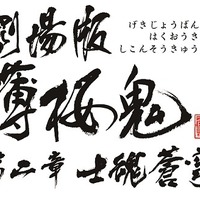 劇場版
げきじょうばん
はくおうき
しこんそうきゅう
薄桜鬼
第二章 士魂蒼穹